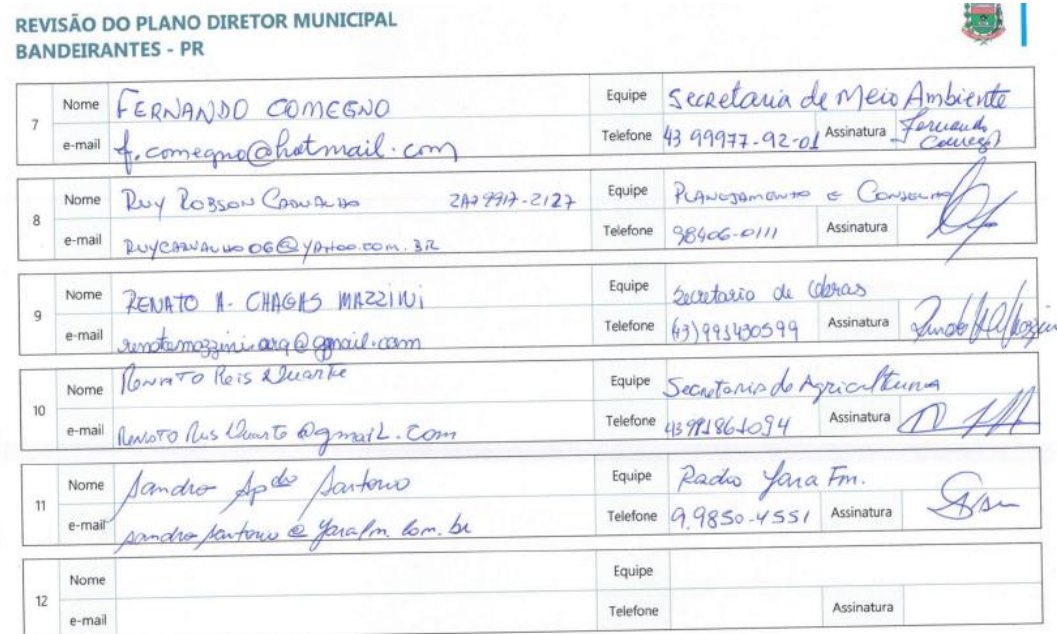 REVISÃO DO PLANO DIRETOR MUNICIPAL
BANDEIRANTES - PR
7 Nome FERNANDO COMEGNO Equipe Secretaria de Meio Ambiente
e-mail f.comegno@hotmail.com Telefone 43 99977-92-01 Assinatura Fernando Comegno
8 Nome Ruy Robson Carvalho 9917-2127 Equipe Planejamento e
e-mail RUYCARVALHO06@YAHOO.COM.BR Telefone 98406-0111 Assinatura
9 Nome RENATO A. CHAGAS MAZZINI Equipe Secretario de Obras
e-mail renatomazzini.arq@gmail.com Telefone (43) 993430599 Assinatura
10 Nome Renato Reis Duarte Equipe Secretario de Agricultura
e-mail Renato Reis Duarte@gmail.com Telefone Assinatura
11 Nome Sandro Apdo Sartorio Equipe Radio Yara Fm.
e-mail sandro sartorio@yarafm.com.br Telefone 9.9850-4551 Assinatura
12 Nome Equipe
e-mail Telefone Assinatura